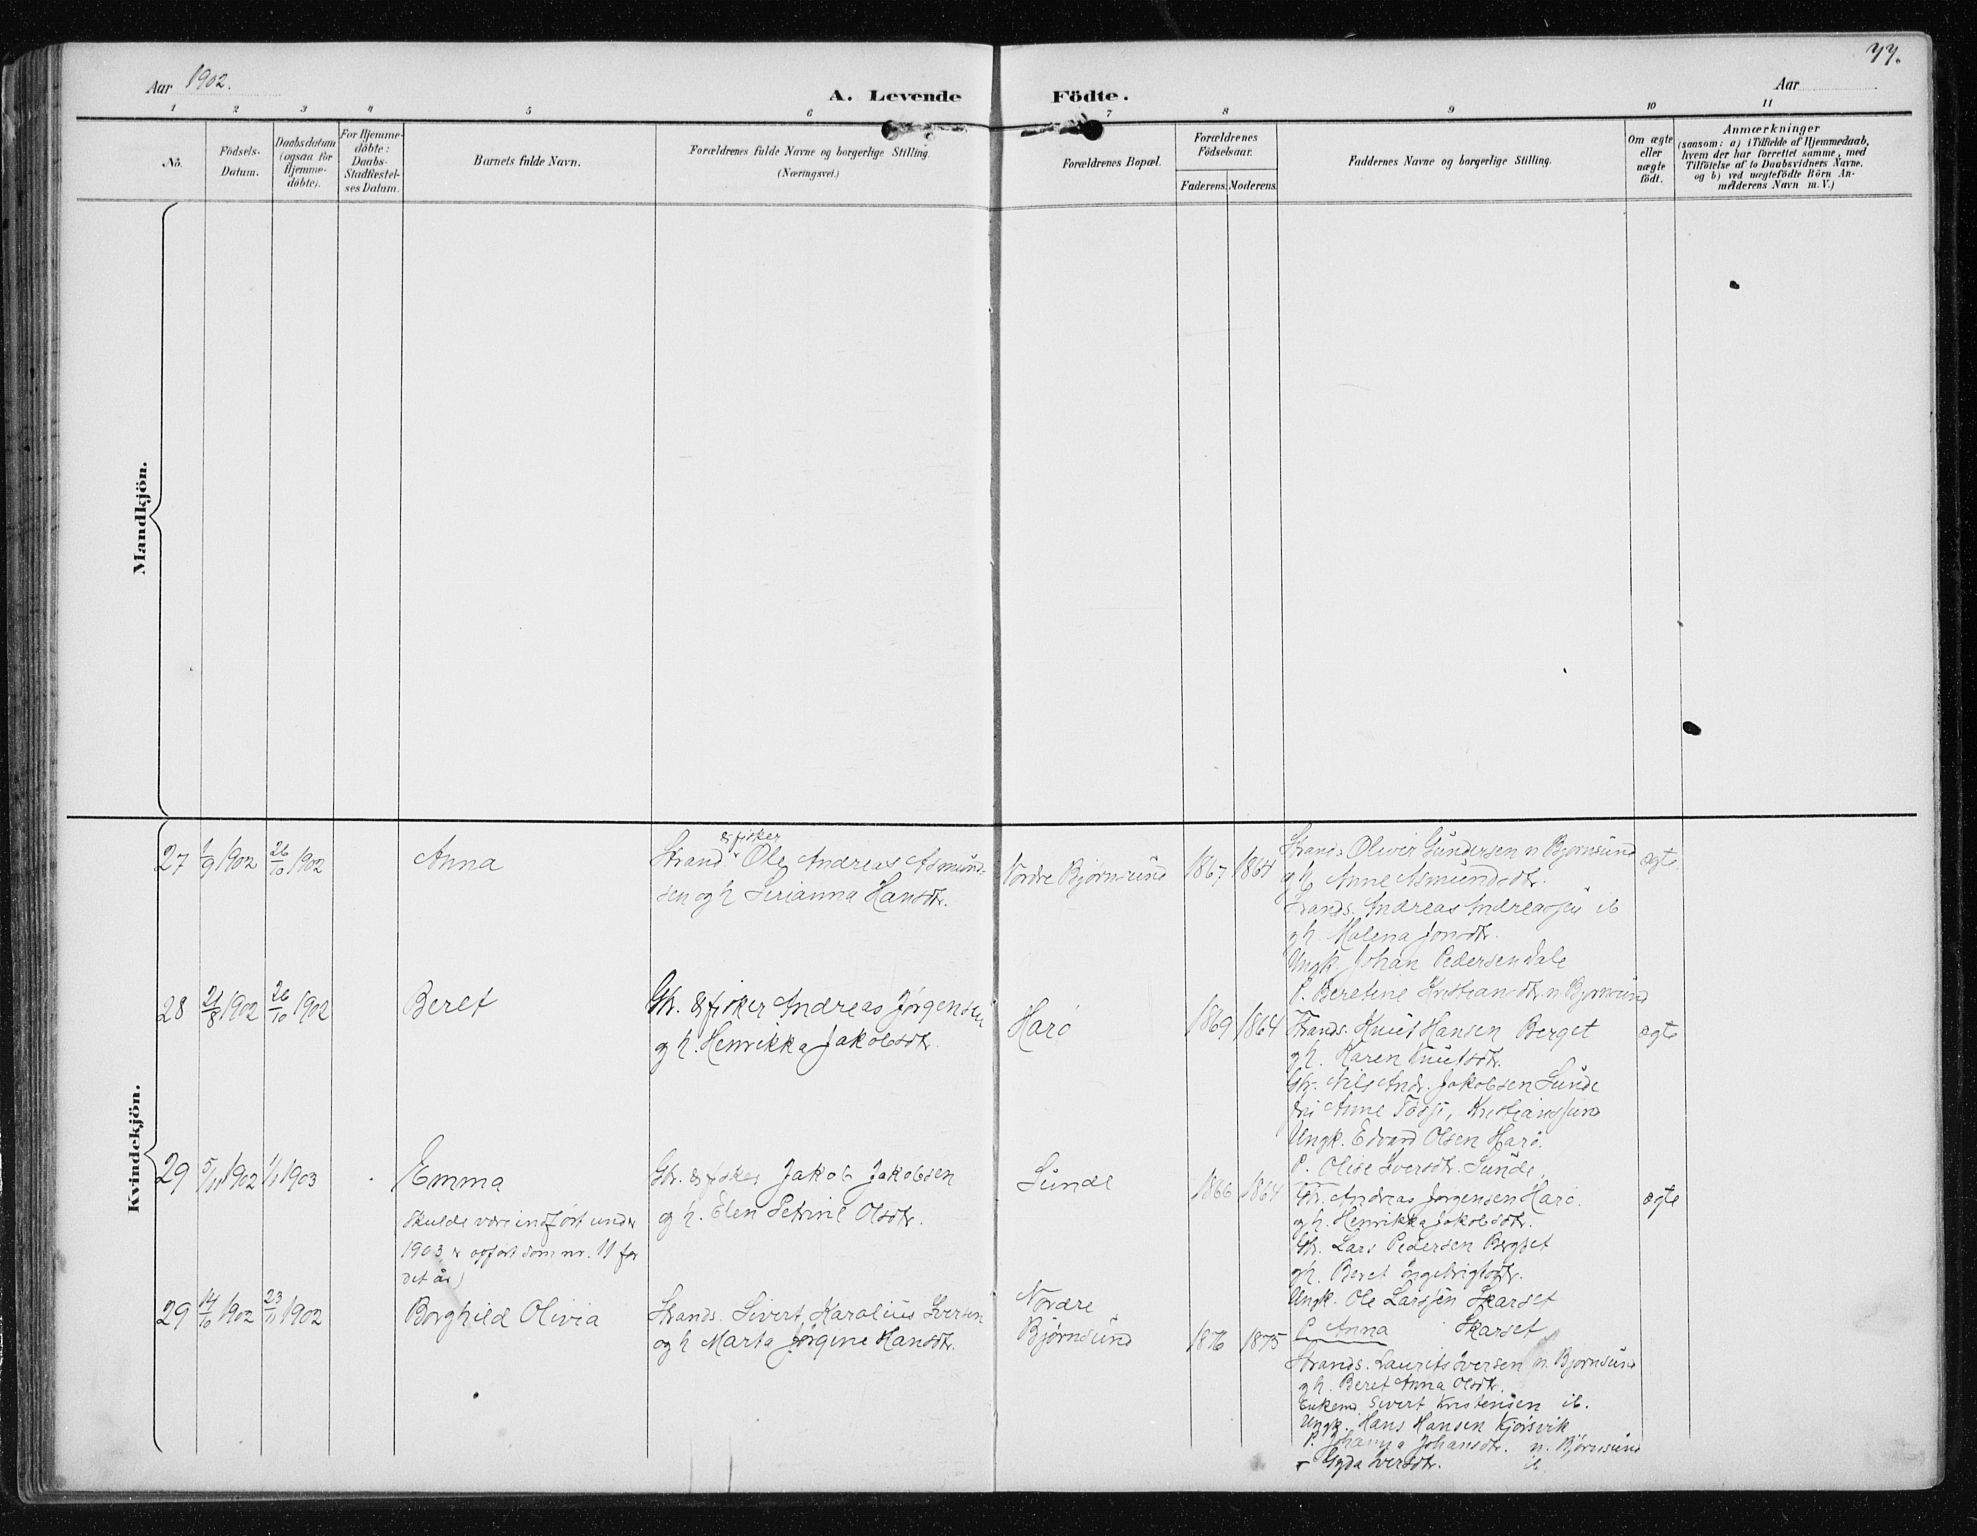 77.
Aar 1902.
A. Levende Födte.
Aar
1 2 3 4 5 6 7 8 9 10 11
No.
Födsels-
Datum.
Daabsdatum
(ogsaa for
Hjemme-
döbte).
For Hjemme-
döbte:
Daabs-
Stadfæstel-
ses Datum.
Barnets fulde Navn.
Forældrenes fulde Navne og borgerlige Stilling.
(Næringsvei.)
Forældrenes Bopæl.
Forældrenes
Födselsaar.
Faderens. Moderens.
Faddernes Navne og borgerlige Stilling.
Om ægte
eller
uægte
födt.
Anmærkninger
(saasom: a) i Tilfælde af Hjemmedaab,
hvem der har forrettet samme, med
Tilföielse af to Daabsvidners Navne,
og b) ved uægtefödte Börn An-
melderens Navn m. V.)
Mandkjön.
Kvindekjön.
27 1/9 1902 26/10 1902
Anna
Strands. & fisker Ole Andreas Asmund-
sen og h Serianna Hansdtr.
Nordre Bjørnsund
1867 1864
Strands. Oliver Gundersen n. Bjørnsund
g h. Anne Asmundsdtr.
Strands. Andreas Andreassen ib
g h. Malena Jonsdtr.
Ungk. Johan Pedersen Dale
P. Beretine Kristiansdtr. n. Bjørnsund
ægte
28 21/8 1902 26/10 1902
Beret
Gbr. & fisker Andreas Jørgensen
og h. Henrikka Jakobsdtr.
Harø
1869 1864
Strands. Knut Hansen Berget
g h. Karen Knutsdtr.
Gbr. Nils Andr. Jakobsen Sunde
Anne Kristianssund
Ungk. Edvard Olsen Harø.
P. Olise Iversdtr. Sunde.
ægte
29 5/11 1902 1/1 1903
Emma
Skulde være indført under
1903, er opført som nr. 11 for
det år)
Gbr. & fisker Jakob Jakobsen
og h. Elen Setrine Olsdtr.
Sunde
1866 1864
Gbr. Andreas Jørgensen Harø.
g h. Henrikka Jakobsdtr.
Gbr. Lars Pedersen Bergset
g h. Beret Ingebrigtsdtr.
Ungk. Ole Larssen Skarset
P. Anna Skarset
ægte
29 14/10 1902 23/11 1902
Borghild Olivia
Strands. Sivert Karolius Iversen
og h Marta Jørgine Hansdtr.
Nordre
Bjørnsund
1876 1875
Strands. Laurits Iversen n. Bjørnsund
g h. Beret Anna Olsdtr.
Enkem. Sivert Kristensen ib.
Ungk. Hans Hansen Kjørsvik
P. Johanna Johansdtr. n. Bjørnsund
Gyda Iversdtr. ib